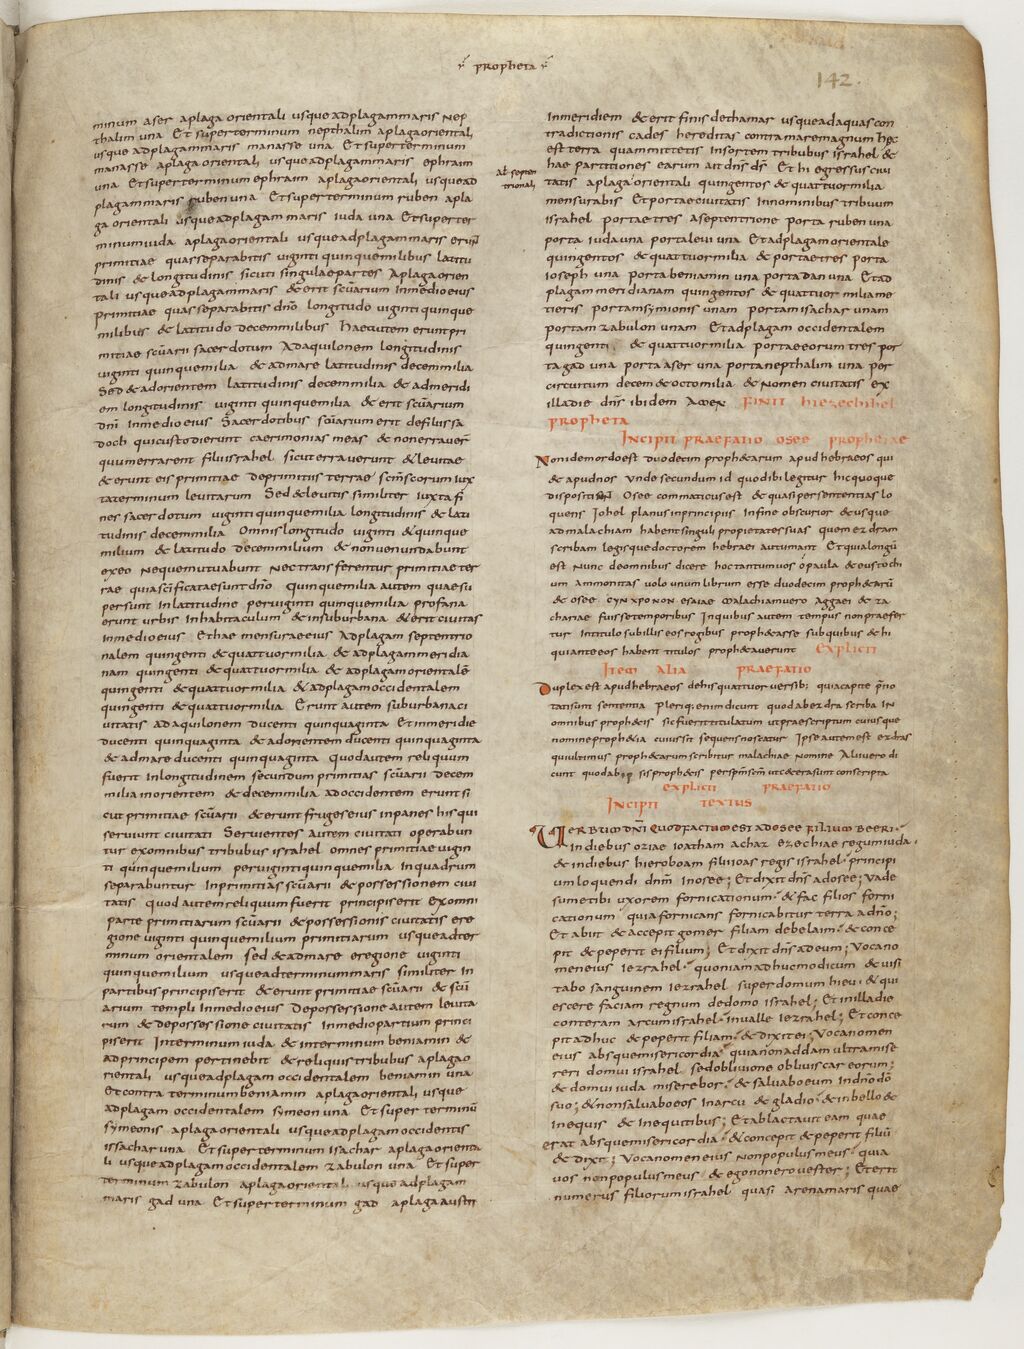 propheta
142.
minum aser aplaga orientali usqueadplagammaris nep
thalim una Et superterminum nepthalim aplagaorientali
usque adplagammaris manasse una Et superterminum
manasse aplaga orientali usqueadplagammaris ephraim
una Etsuperterminum ephraim aplagaorientali usquead
plagammaris rubenuna Etsuperterminum ruben apla
ga orientali usqueadplagam maris iuda una Etsuperter
minumiuda aplagaorientali usqueadplagammaris erun̄
primitiae quasseparabitis viginti quinquemilibus latitu
dinis & longitudinis sicuti singulaepartes Aplagaorien
tali usqueadplagammaris & erit scūarium Inmedioeius
primitiae quasseparabitis dnō longitudo viginti quinque
milibus & latitudo decemmilibus Haecautem eruntpri
mitiae scūarii sacerdotum Adaquilonem longitudinis
viginti quinquemilia & admare latitudinis decemmilia
Sed & adorientem latitudinis decemmilia & admeridi
em longitudinis viginti quinquemilia & erit scūarium
dnī Inmedio eius Sacerdotibus scūariumerit defiliissa
doch quicustodierunt caerimonias meas & nonerraver̄
quumerrarent filiiisrahel sicuterraverunt & levitae
& erunt eis primitiae deprimitiis terrae scm̄scorum iux
taterminum levitarum Sed & levitis similiter iuxtafi
nes sacerdotum viginti quinquemilia longitudinis & lati
tudinis decemmilia Omnis longitudo viginti & quinque
milium & latitudo decemmilium & nonvenundabunt
exeo Nequemutuabunt Nectransferentur primitiaeter
rae quiascīficataesuntdnō Quinquemilia autem quaesu
persunt Inlatitudine perviginti quinquemilia profana
erunt urbis Inhabitaculum & insuburbana & erit civitas
Inmedioeius Ethae mensuraeeius Adplagam septentrio
nalem quingenti & quattuormilia & adplagammeridia
nam quingenti & quattuormilia & adplagamorientalē
quingenti & quattuormilia & adplagamoccidentalem
quingenti & quattuormilia Erunt autem suburbanaci
vitatis adaquilonem ducenti quinquaginta Etinmeridie
ducenti quinquaginta & adorientem ducenti quinquaginta
& admare ducenti quinquaginta Quodautem reliquum
fuerit Inlongitudinem secundum primitias scūarii decem
milia inorientem & decemmilia adoccidentem eruntsi
cut primitiae scūarii & erunt frugeseius inpanes hisqui
serviunt civitati Servientes autem civitati operabun
tur exomnibus tribubus israhel omnes primitiae vigin
ti quinquemilia pervigintiquinquemilia Inquadrum
separabuntur Inprimitias scūarii & possessionem civi
tatis quod autemreliquumfuerit principiserit exomni
parte primitiarum scūarii & possessionis civitatis ere
gione viginti quinquemilium primitiarum usqueadter
minum orientalem sed & admare eregione viginti
quinquemilium usqueadterminummaris similiter In
partibus principiserit & erunt primitiae scūarii & scū
arium templi Inmedioeius Depossessione autem levita
rum & depossessione civitatis Inmediopartium princi
piserit Interminum iuda & interminum beniamin &
adprincipem pertinebit & reliquistribubus aplagao
rientali usqueadplagam occidentalem beniamin una
Etcontra terminumbeniamin aplagaorientali usque
adplagam occidentalem symeon una Et super terminū
symeonis aplagaorientali usqueadplagam occidentis
issacharuna Etsuperterminum issachar aplagaorienta
li usqueadplagamoccidentalem zabulon una Et super
terminum zabulon aplagaorientali usque adplagam
maris gad una Etsuperterminum gad aplagaaustri
Inmeridiem & erit finis dethamar usqueadaquascon
tradictionis cades hereditas contramaremagnum haec
est terra quammittetis Insortem tribubus israhel &
hae partitiones earum ait dn̄s d̄s Et hi egressusciui
Ab septen
trionali
tatis aplaga orientali quingentos & quattuormilia
mensurabis Etportaecivitatis Innominibus tribuum
israhel portaetres aseptentrione porta ruben una
porta iudauna portalevi una Etadplagam orientale
quingentos & quattuormilia & portaetres porta
ioseph una portabeniamin una portadan una Etad
plagam meridianam quingentos & quattuor miliame
tieris portamsymionis unam portamisachar unam
portam zabulon unam Etadplagam occidentalem
quingenti & quattuormilia portaeeorum tres por
tagad una porta aser una portanepthalim una per
circuitum decem & octomilia & nomen civitatis ex
illadie dn̄s ibidem Amen FINIT hiezechihel
propheta
Incipit praefatio osee prophetae
Nonidemordoest duodecim proph&arum apud hebraeos qui
& apudnos Unde secundum id quodibilegitur hicquoque
dispositisunt Osee commaticusest & quasipersententias lo
quens Iohel planusinprincipiis Infine obscurior & usque
admalachiam habentsinguli proprietatessuas quem ezdram
scribam legisquedoctorem hebraei autumant Et quialongū
est Nunc deomnibus dicere hoctantumvos o paula & eustochi
um ammonitas volo unumlibrum esse duodecim proph&arū
& osee synxponon esaiae malachiamvero Aggaei & za
chariae fuissetemporibus Inquibus autem tempus nonpraefer
tur Intitulo subillis eosregibus proph&asse subquibus & hi
quianteeos habent titulos proph&averunt Explicit
Item alia praefatio
Duplexest apudhebraeos dehisquattuor versib; quiacapite p̄no
tatisunt sententia Pleriq; enimdicunt quodabezdra scriba In
omnibus proph&is sicfuerittitulatum utpraescriptum cuiusque
nomineproph&ia cuiussit sequensnoscatur Ipseautemest ezdras
quiultimus proph&arumscribitur malachiae nomine Aliivero di
cunt quodab ipsisproph&is persp̄mscm̄ ut&ceterasunt conscripta
explicit praefatio
Incipit textus
Verbum dn̄i quodfactumest adosee filium beeri
Indiebus oziae ioatham achaz ezechiae regumiuda.
& indiebus hieroboam filiiioas regis israhel principi
umloquendi dn̄m Inosee; Etdixit dn̄s adosee; Vade
sumetibi uxorem fornicationum & fac filios forni
cationum quiafornicans fornicabitur terra adn̄o;
Et abiit & accepit gomer filiam debelaim & conce
pit & peperit eifilium; Etdixit dn̄s adeum; Vocano
meneius iezrahel quoniamadhucmodicum & visi
tabo sanguinem iezrahel superdomum hieu & qui
escere faciam regnum dedomo israhel; Et inilladie
conteram arcumisrahel invalle iezrahel; Etconce
pitadhuc & peperit filiam & dixitei; Vocanomen
eius absquemisericordia quianonaddam ultramise
reri domui israhel sedoblivione obliviscar eorum;
& domui iuda miserebor & salvaboeum Indn̄odō
suo; & nonsalvaboeos Inarcu & gladio & inbello &
inequis & inequitibus; Etablactavit eam quae
erat absquemisericordia & concepit & peperit filiū
& dixit; Vocanomeneius Nonpopulusmeus quia
vos nonpopulusmeus & egononerovester; Eterit
numerus filiorumisrahel quasi arenamaris quae